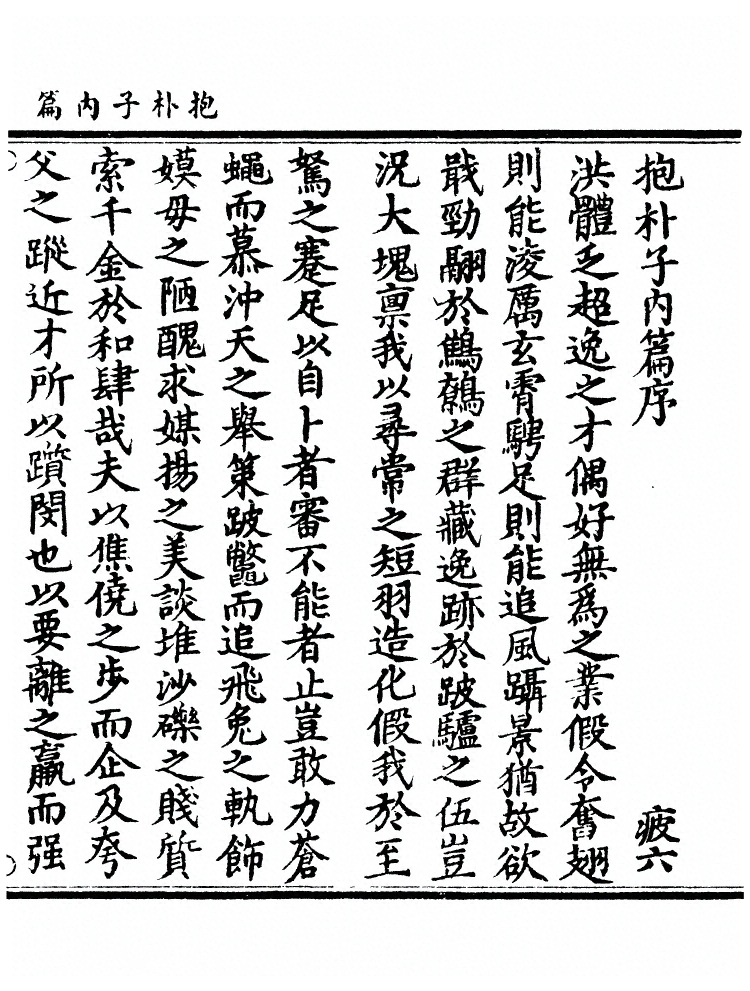 抱朴子內篇
抱朴子內篇序 疲六
洪體乏超逸之才偶好無爲之業假令奮翅
則能淩厲玄霄騁足則能追風躡景猶故欲
戢勁翮於鷦鷃之群藏逸跡於跛驢之伍豈
況大塊禀我以尋常之短羽造化假我於至
駑之蹇足以自卜者審不能者止豈敢力蒼
蠅而慕沖天之舉策跛鼈而追飛兔之軌飾
嫫母之陋醜求媒揚之美談堆沙礫之賤質
索千金於和肆哉夫以僬僥之步而企及夸
父之蹤近才所以躓閡也以要離之羸而强